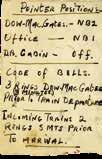 POINTER POSITIONS
DOW-MAC GATES - NO2
OFFICE — NO1
DR. GAGIN - OFF.
CODE OF BELLS.
3 RINGS DOW-MAC GATES
PRIOR TO TRAIN DEPARTURE
INCOMING TRAINS 2
RINGS 5 MTS PRIOR
TO ARRIVAL.